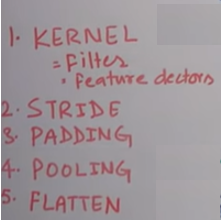 1. KERNEL
= Filter
• feature dectors
2. STRIDE
3. PADDING
4. POOLING
5. FLATTEN